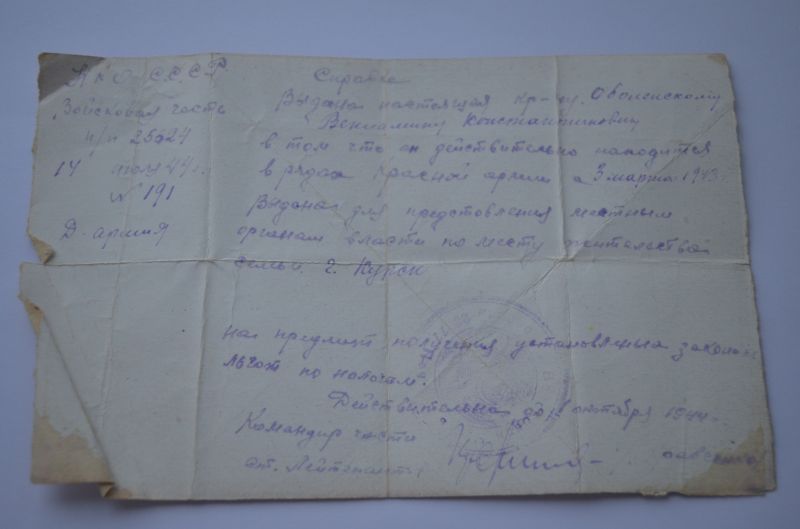 Н К О С.С.С.Р.
Войсковая часть
п/п 25624
14 июля 44 г.
№ 191
Д. армия
Справка
Выдана настоящая кр-цу Оболенскому
Вениамину Константиновичу
в том что он действительно находится
в рядах Красной армии с 3 марта 1943
Выдана для предстовления местным
органам власти по месту жительства
семьи г. Курск
на предмет получения установленых законом
льгот по налогам.
Действительна до 1 октября 1944
Командир части
ст. Лейтенант